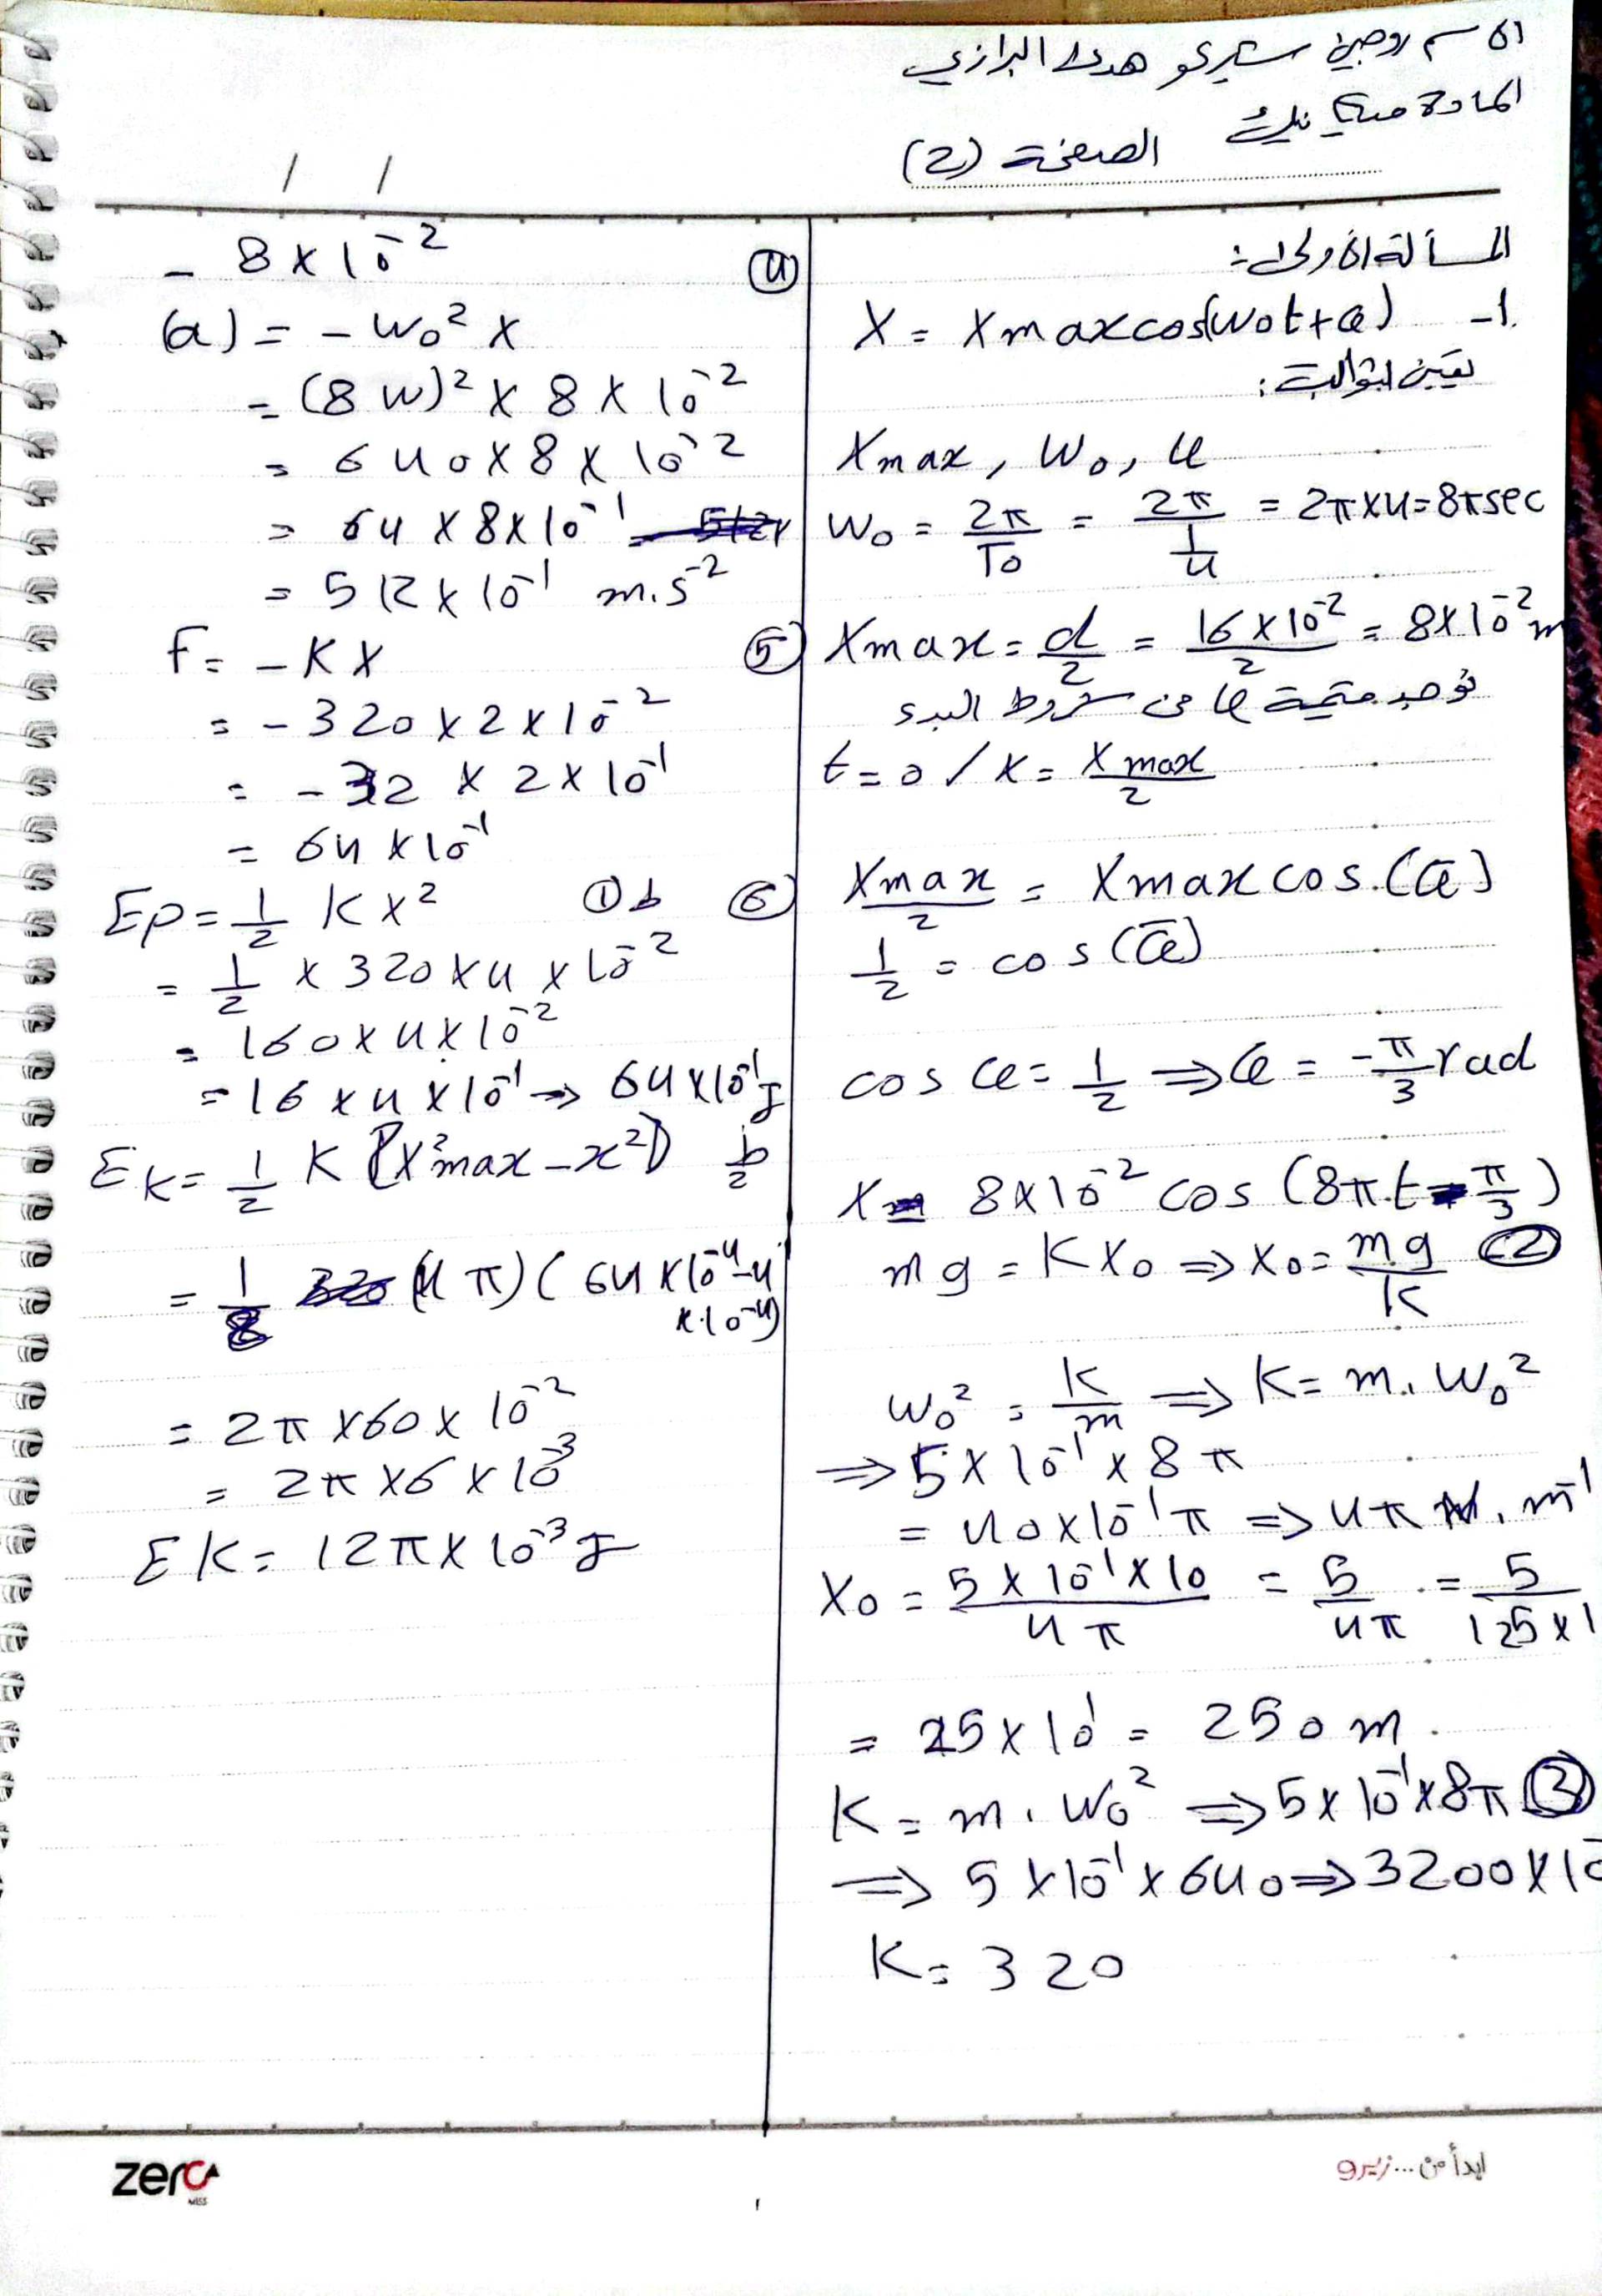 الاسم روجين شيركو هدى البرازي
المادة ميكانيك
الصفحة (2)
/ /
المسألة الأولى:
1- X = Xmax cos(ω0t+φ)
تعيين الثوابت:
Xmax, ω0, φ
ω0 = 2π/T0 = 2π/(1/4) = 2π×4 = 8π sec
Xmax = d/2 = 16×10^-2/2 = 8×10^-2 m
نوجد قيمة φ من شروط البدء
t=0 / x = Xmax/2
Xmax/2 = Xmax cos.(φ̄)
1/2 = cos(φ̄)
cos φ = 1/2 ⇒ φ = -π/3 rad
X = 8×10^-2 cos (8π.t - π/3)
② mg = KX0 ⇒ X0 = mg/K
ω0² = K/m ⇒ K = m.ω0²
⇒ 5×10^-1 × 8π
= 40×10^-1 π ⇒ 4π N.m^-1
X0 = 5×10^-1×10/4π = 5/4π = 5/125×1
= 25×10^1 = 250 m.
③ K = m.ω0² ⇒ 5×10^-1×8π
⇒ 5×10^-1×640 ⇒ 3200×10^-
K = 320
④ - 8×10^-2
(a) = -ω0² x
= (8π)² × 8×10^-2
= 640×8×10^-2
= 64×8×10^-1
= 512×10^-1 m.s^-2
⑤ F = -KX
= -320×2×10^-2
= -32×2×10^-1
= 64×10^-1
⑥ b① Ep = 1/2 KX²
= 1/2 × 320×4×10^-2
= 160×4×10^-2
= 16×4×10^-1 ⇒ 64×10^-1 J
b/2 Ek = 1/2 K (X²max - x²)
= 1/2 (4π)(64×10^-4 - 4×10^-4)
= 2π×60×10^-2
= 2π×6×10^-3
Ek = 12π×10^-3 J
zero
MISS
ابدأ من ... زيرو